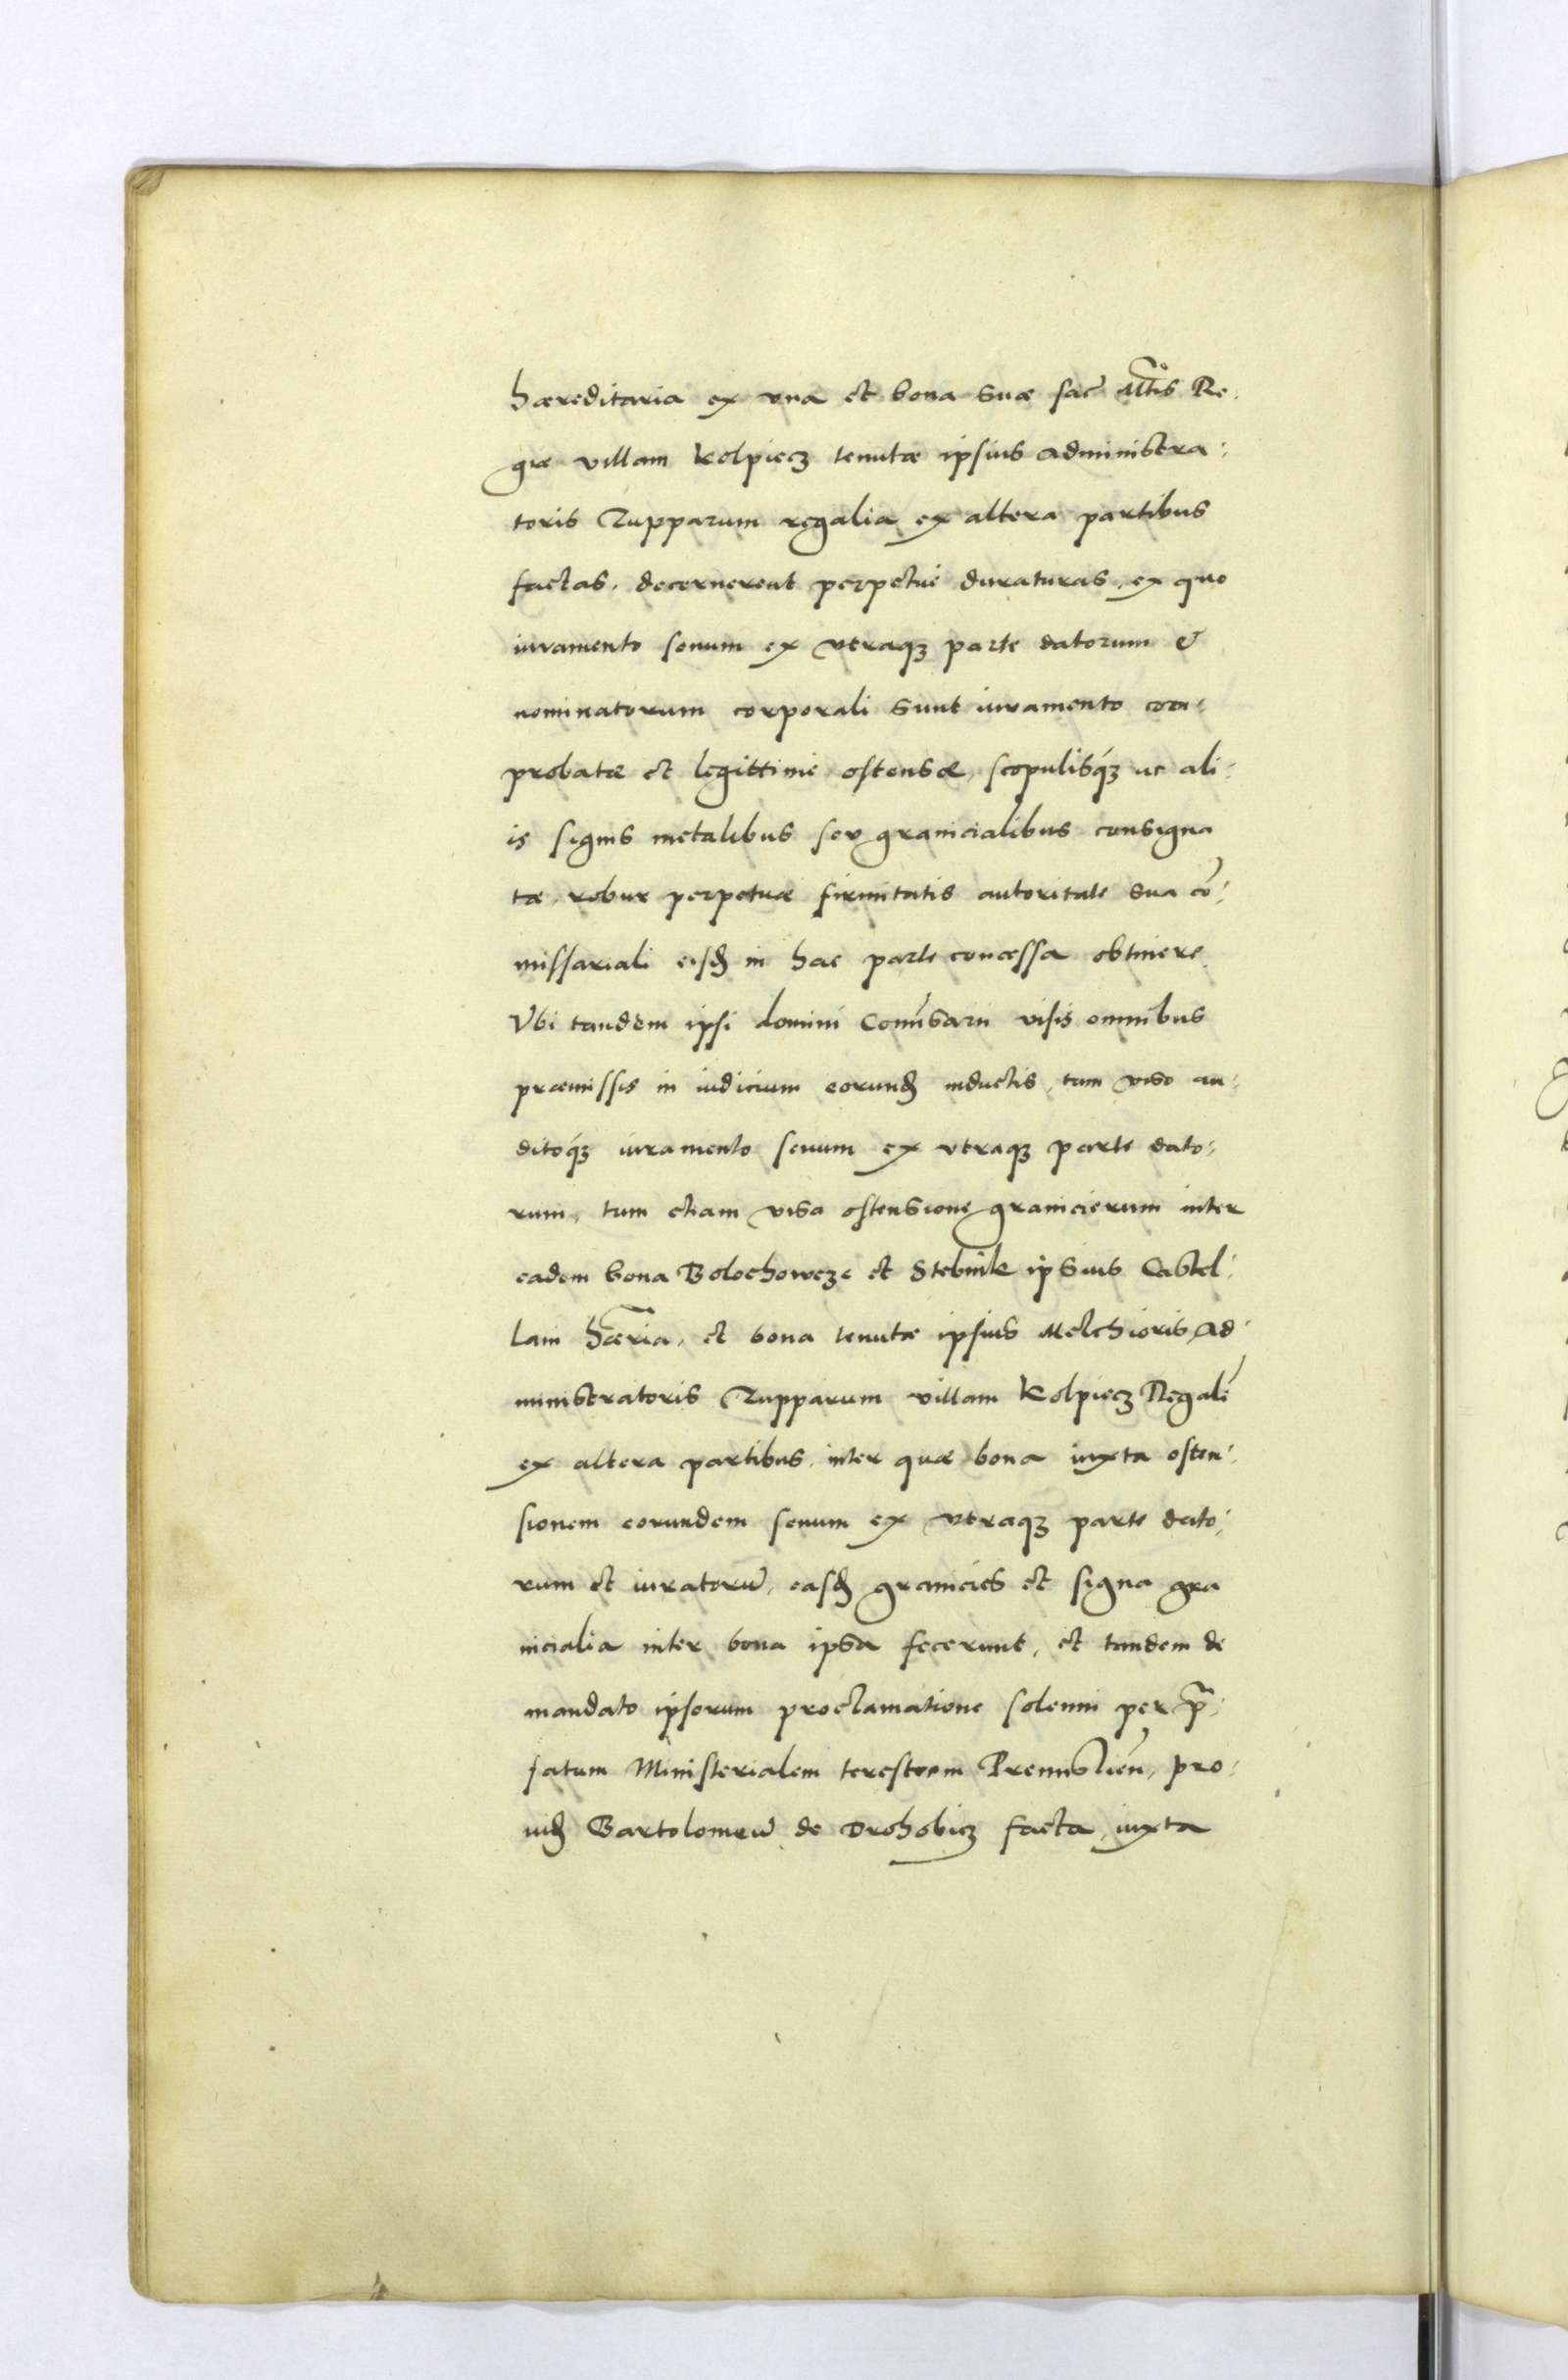 hæreditaria ex vna et bona suæ sac̃ Mt̃is Re-
giæ villam Kolpiecz tenutæ ipsius administra-
toris Zupparum regalia ex altera partibus
factas, decernerent perpetue duraturas, ex quo
iuramento senum ex vtraqȝ parte datorum &
nominatorum corporali sunt iuramento com-
probatæ et legittime ostensæ, scopulisqȝ ac ali-
is signis metalibus seu granicialibus consigna
tæ, robur perpetuæ firmitatis autoritate sua cō-
missariali eisd̃ in hac parte concessa obtinere.
Vbi tandem ipsi domini Com̃isarii visis omnibus
præmissis in iudicium eorund̃ inductis, tam viso au-
ditoqȝ iuramento senum ex vtraqȝ parte dato-
rum, tum etiam visa ostensione granicierum inter
eadem bona Bolochowcze et Stebnik ipsius Castel-
lani hæria, et bona tenutæ ipsius Melchioris Ad-
ministratoris Zupparum villam Kolpiecz Regalẽ
ex altera partibus, inter quæ bona iuxta osten-
sionem eorundem senum ex vtraqȝ parte dato-
rum et iuratorũ, easd̃ granicies et signa gra
nicialia inter bona ipsa fecerunt, et tandem de
mandato ipsorum proclamatione solenni per p̃-
fatum Ministerialem terestrem Premislieñ, pro-
uid̃ Bartolomeũ de Drohobicz facta, iuxta